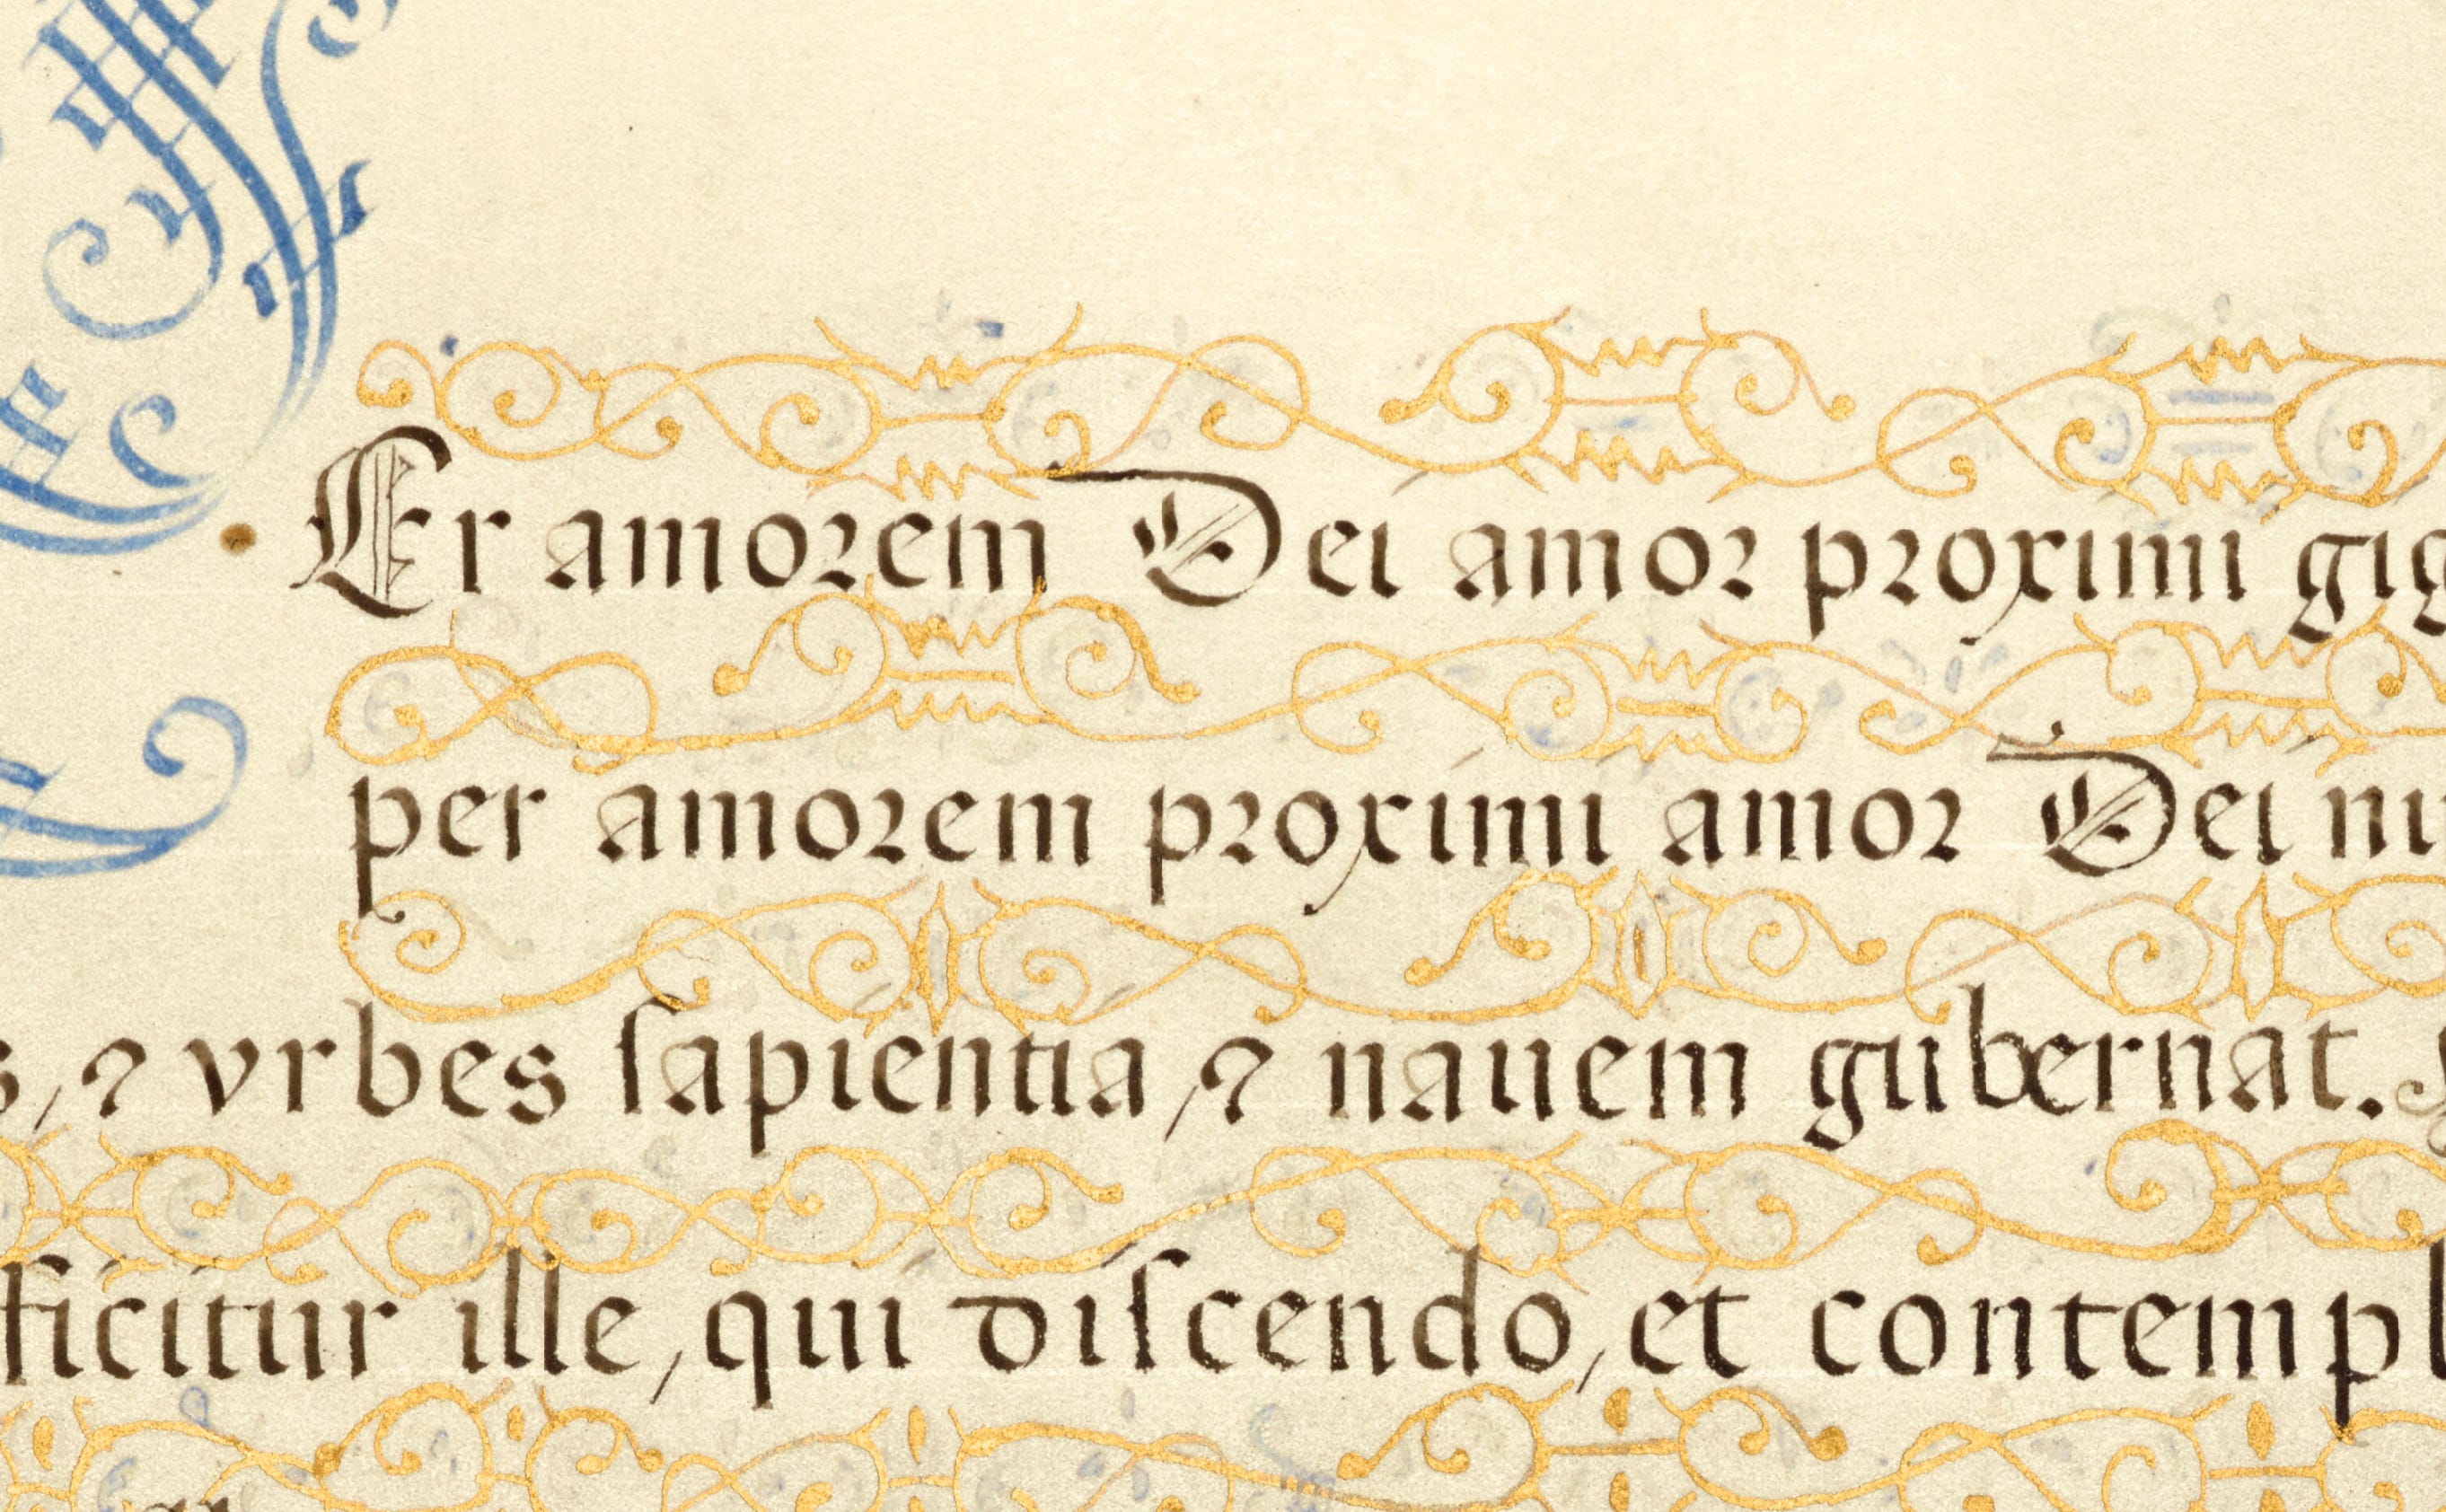 Er amorem Dei amor proximi gig
per amorem proximi amor Dei nu
s, & vrbes sapientia, & nauem gubernat.
ficitur ille, qui discendo, et contempl